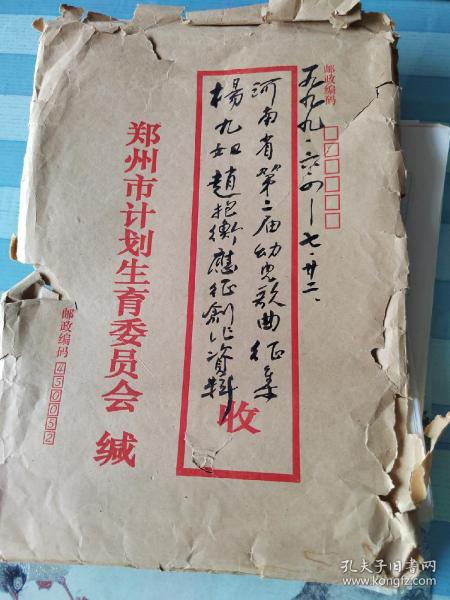 邮政编码
一九九九·六·四—七·廿二、
河南省第二届幼儿歌曲征集
楊九如 趙抱衡應征創作資料
收
郑州市计划生育委员会 缄
邮政编码 450052
孔夫子旧书网
kongfz.com